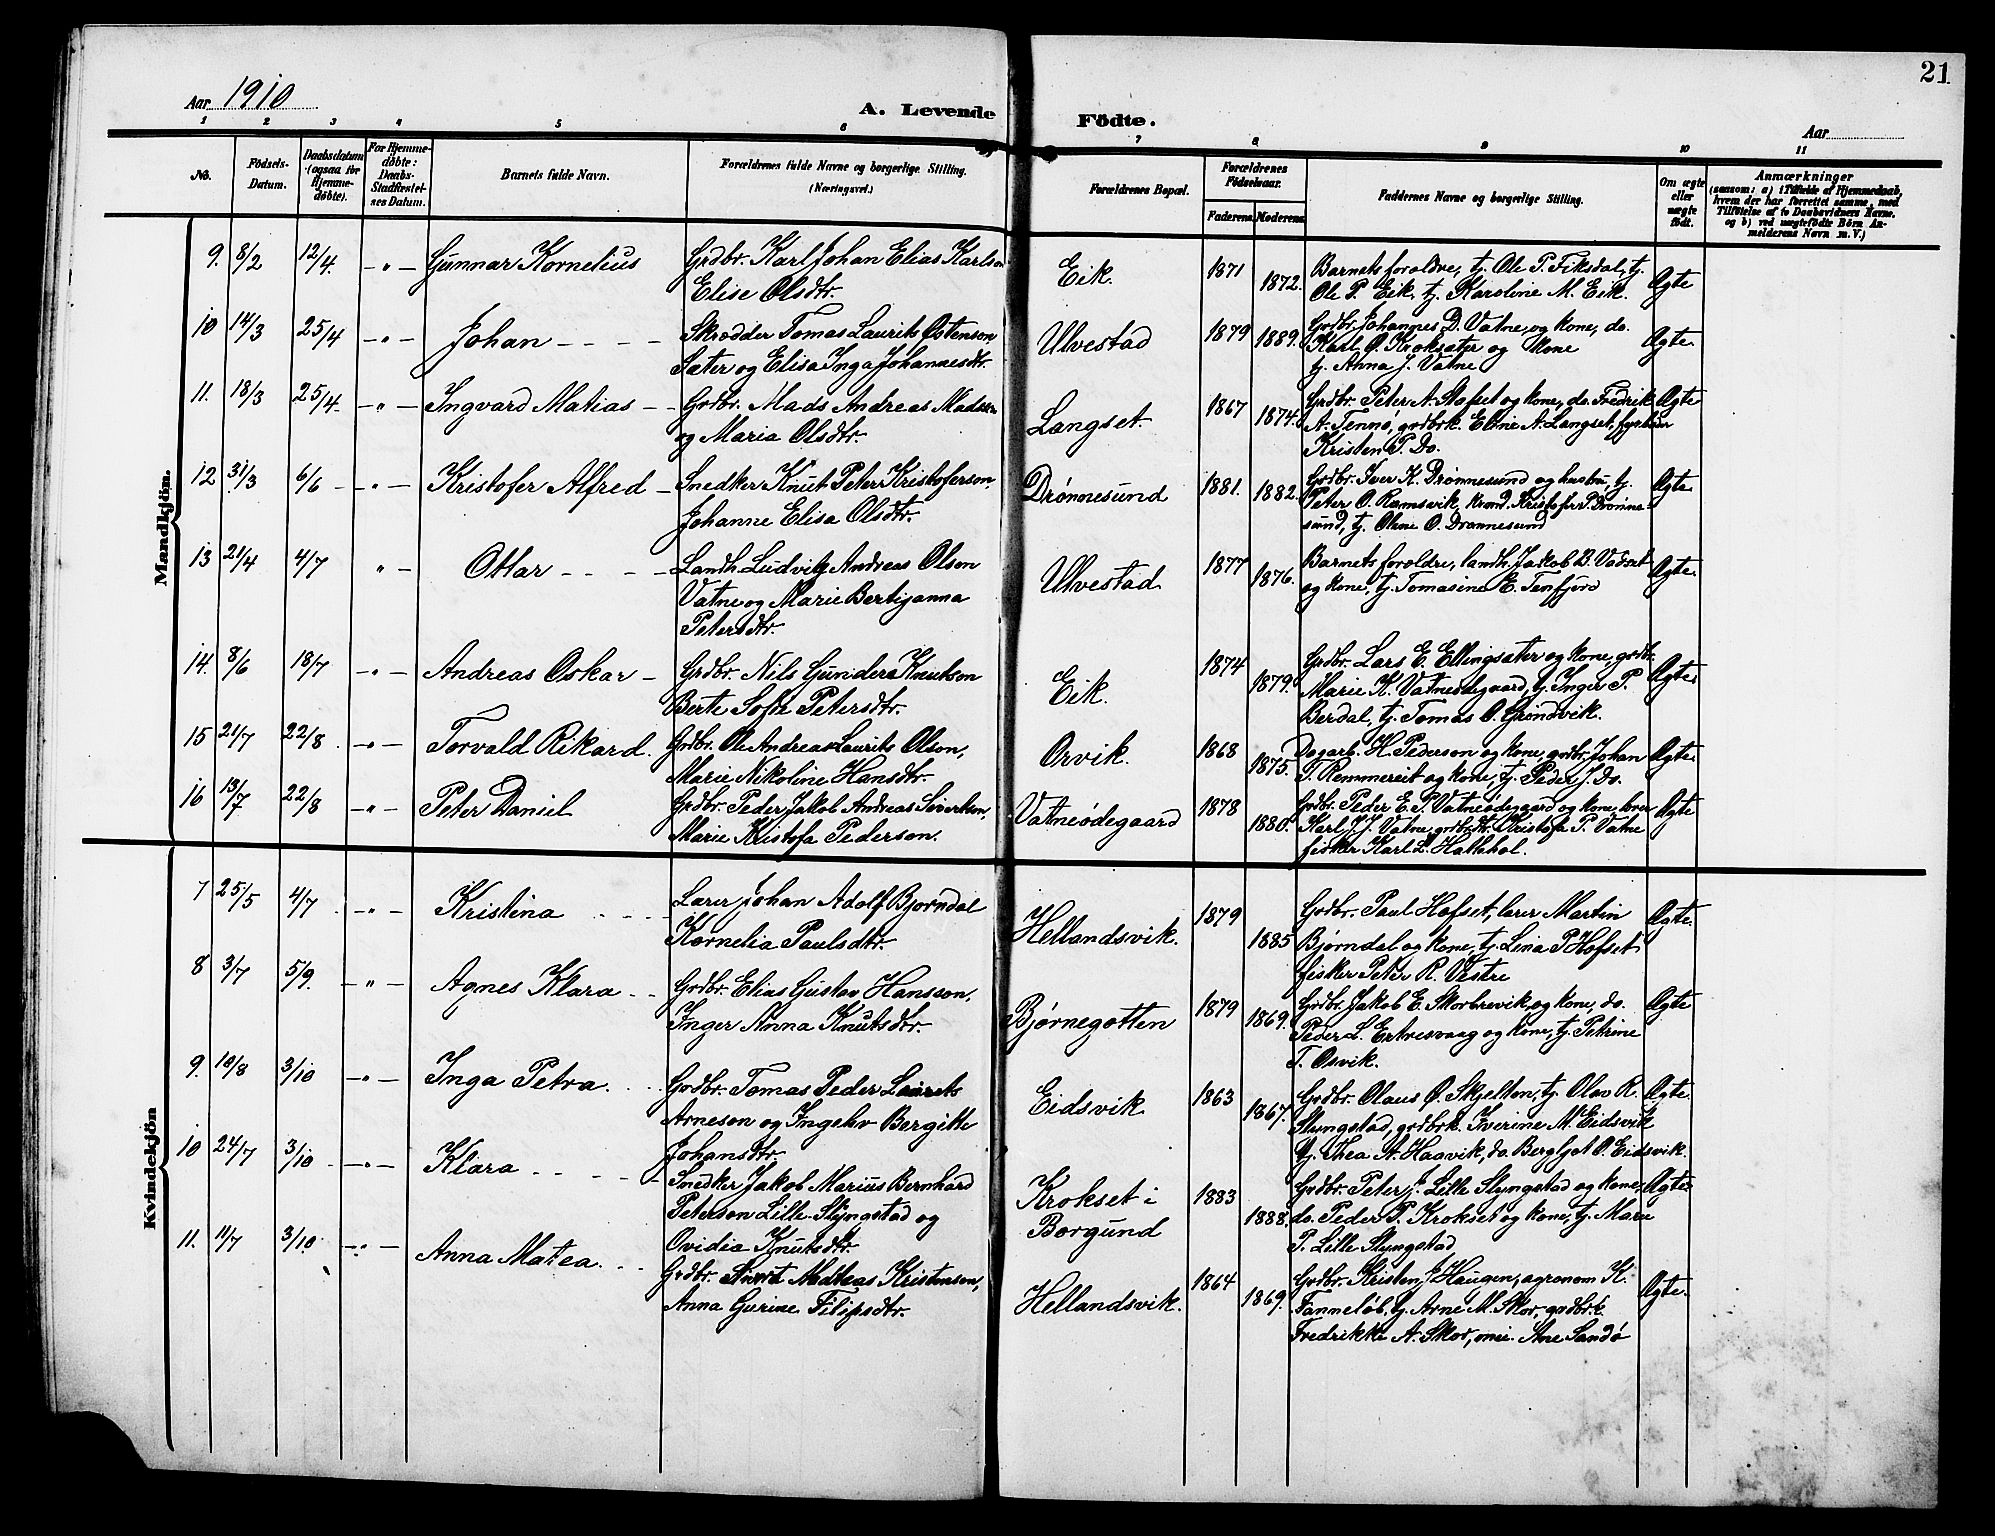 21
Aar 1910
A. Levende Födte.
Aar
1 2 3 4 5 6 7 8 9 10 11
No.
Födsels-Datum.
Daabsdatum (ogsaa for Hjemmedøbte).
For Hjemmedøbte: Daabs-Stadfæstelses Datum.
Barnets fulde Navn.
Forældrenes fulde Navne og borgerlige Stilling.
(Næringsvei.)
Forældrenes Bopæl.
Forældrenes Födselsaar.
Faderens. Moderens.
Faddernes Navne og borgerlige Stilling.
Om ægte eller uægte født.
Anmærkninger
(saasom: a) i Tilfælde af Hjemmedaab, hvem der har forrettet samme, med Tilføielse af to Daabsvidners Navne, og b) ved uægtefødte Børn Anmelderens Navn m. V.)
Mandkjön.
9. 8/2 12/4. -"- Gunnar Kornelius Grdbr. Karl Johan Elias Karlson
Elise Olsdtr. Eik. 1871 1872. Barnets foreldre, tj. Ole P. Fiksdal, tj.
Ole P. Eik, tj. Karoline M. Eik. Ægte
10 14/3 25/4 -"- Johan Skredder Tomas Laurits Ostenson
Sæter og Elisa Inga Johannesdtr. Ulvestad 1879 1889. Grdbr. Johannes D. Vatne og kone, do.
Karl O. Kroksæter og kone
tj. Anna J. Vatne Ægte.
11. 18/3 25/4. -"- Ingvard Matias Grdbr. Mads Andreas Madsson
og Maria Olsdtr. Langset. 1867 1874. Grdbr. Peter A. Stafset og kone, do. Fredrik
A. Tennø, grdbrk. Eline A. Langset,
Kristen P. Do. Ægte
12 31/3 6/6 -"- Kristofer Alfred Snedker Knut Peter Kristoferson.
Johanne Elisa Olsdtr. Drønnesund 1881. 1882. Grdbr. Iver K. Drønnesund og hustru, tj.
Peter O. Ramsvik, Kristofer P. Drønne-
sund, tj. Oline O. Drønnesund Ægte.
13 21/4 4/7 " Ottar Landh. Ludvig Andreas Olson
Vatne og Marie Bertijanna
Petersdtr. Ulvestad 1877 1876. Barnets foreldre, landh. Jakob B. Vadset
og kone, tj. Tomasine E. Tenfjord Ægte.
14. 8/6 18/7 -"- Andreas Oskar Grdbr. Nils Gunders Knutson
Berte Sofie Petersdtr. Eik. 1874 1879. Grdbr. Lars E. Ellingsæter og kone, grdbr.
Marie K. Vatneødegaard, tj. Inger P.
Berdal, tj. Tomas O. Grøndvik. Ægte.
15 21/7 22/8. -"- Torvald Rikard. Grdbr. Ole Andreas Laurits Olson,
Marie Nikoline Hansdtr. Orvik. 1868 1875. Dagarb. H. Pederson og kone, grdbr. Johan
T. Remmereit og kone, tj. Peder J. Do. Ægte.
16 13/7 22/8 -"- Peter Daniel Grdbr. Peder Jakob Andreas Sivertson,
Marie Kristofa Pederson. Vatneødegaard 1878 1880. Grdbr. Peder E. P. Vatneødegaard og kone, lærer
Karl J. J. Vatne, grdbrdtr. Kristofa P. Vatne
fisker Karl L. Hallehol. Ægte
Kvindekjön
7 25/5 4/7 -"- Kristina Lærer Johan Adolf Bjørndal
Kornelia Paulsdtr. Hellandsvik. 1879 1885 Grdbr. Paul Hofset, lærer Martin
Bjørndal og kone, tj. Lina P. Hofset
fisker Peter R. Vestre Ægte.
8 3/7 5/9. -"- Agnes Klara Grdbr. Elias Gustav Hansson,
Inger Anna Knutsdtr. Bjørnegotten 1879 1869. Grdbr. Jakob E. Skorbrevik og kone, do.
Peder L. Ertresvaag og kone, tj. Petrine
T. Osvik. Ægte
9. 10/8 3/10 -"- Inga Petra Grdbr. Tomas Peder Laurits
Arneson og Ingebr Bergitte
Johansdtr. Eidsvik 1863 1867. Grdbr. Olaus Ø. Skjelten, tj. Olav R.
Slyngstad, grdbrk. Iverine M. Eidsvik
tj. Thea A. Haavik, do. Bergljot O. Eidsvik. Ægte.
10 24/7 3/10 -"- Klara Snedker Jakob Marius Bernhard
Peterson Lille-Slyngstad og
Ovidia Knutsdtr. Krokset i
Borgund 1883 1888. Grdbr. Peter J. Lille Slyngstad og kone,
do. Peder P. Krokset og kone, tj. Marie
P. Lille Slyngstad Ægte.
11. 11/7 3/10. -"- Anna Matea Grdbr. Sivert Mathias Kristenson,
Anna Gurine Filipsdtr. Hellandsvik. 1864 1869. Grdbr. Kristen J. Haugen, agronom K.
Tanneløb, tj. Arne M. Skor, grdbrk.
Fredrikke A. Skor, mei. Ane Sandø Ægte.